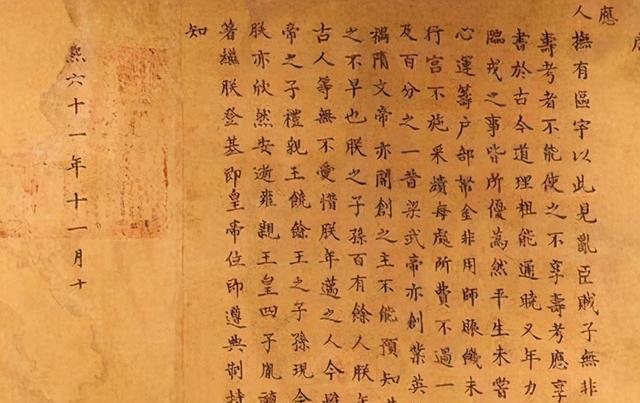 應
人撫有區宇以此見亂臣賊子無非
壽考者不能使之不享壽考應享
書於古今道理粗能通曉又年力
臨戎之事皆所優為然平生未嘗
心運籌戶部帑金非用師賑饑未
行宮不施采繢每處所費不過一
及百分之一昔梁武帝亦創業英
禍隋文帝亦開創之主不能預知
之不早也朕之子孫百有餘人朕年
古人等無不愛惜朕年邁之人今雖
帝之子禮親王饒餘王之子孫現今
朕亦欣然安逝雍親王皇四子胤禛
著繼朕登基即皇帝位即遵典制持
知
熙六十一年十一月十